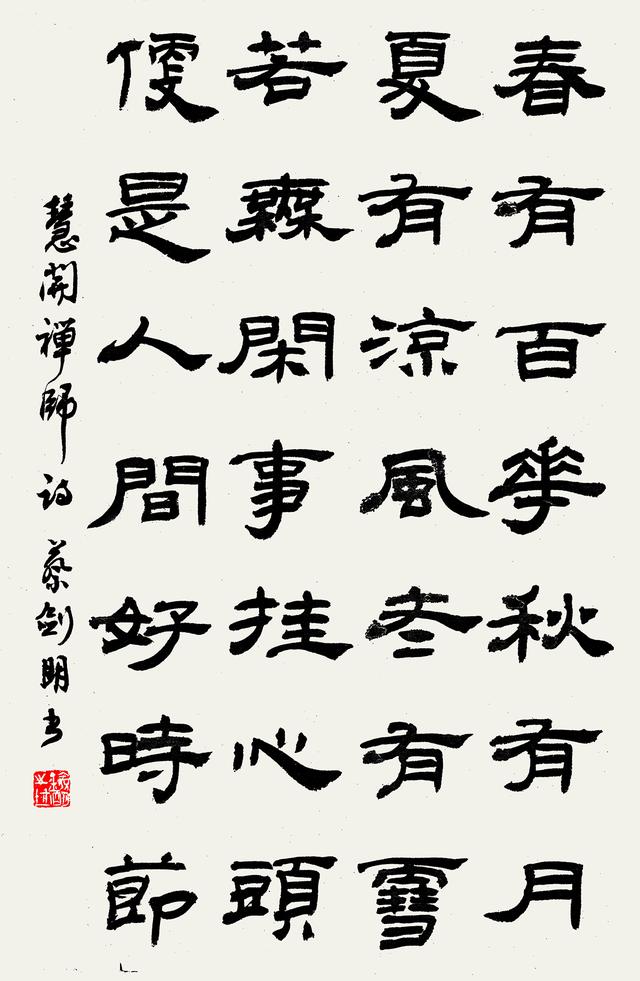 春有百花秋有月
夏有涼風冬有雪
若無閑事挂心頭
便是人間好時節
慧開禪師诗 蔡劍明书